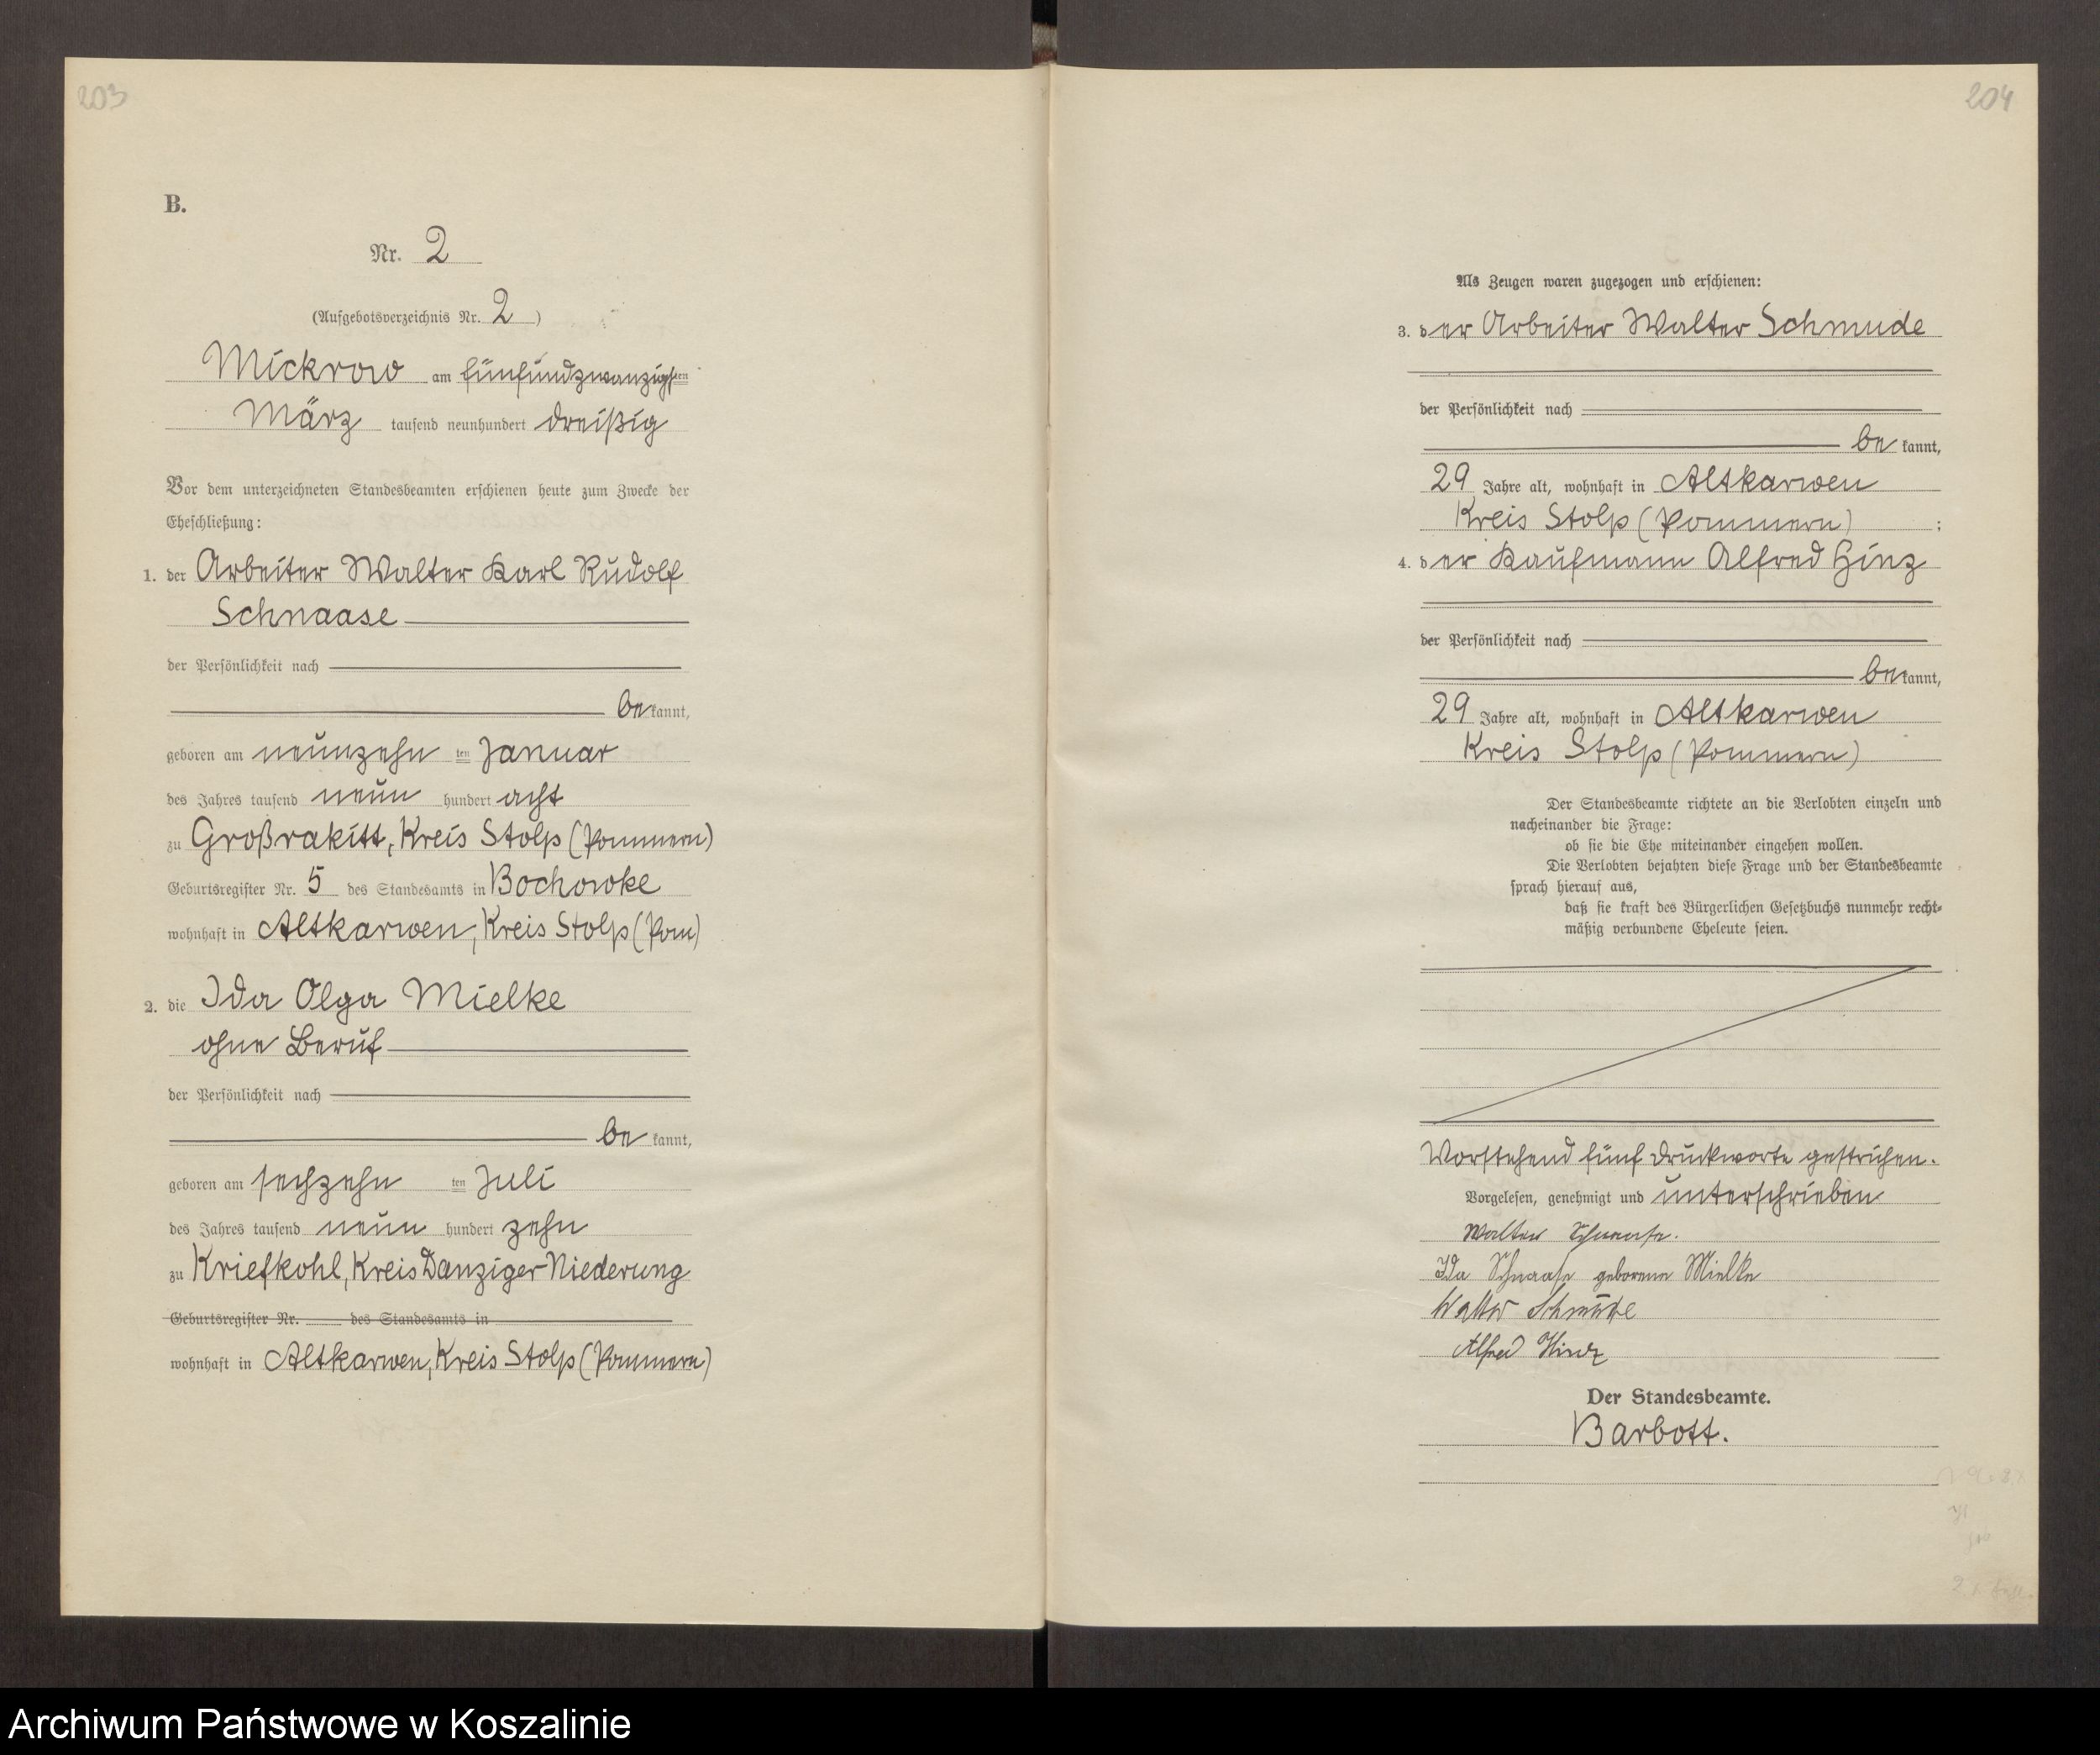 203
B.
Nr. 2
(Aufgebotsverzeichnis Nr. 2)
Mickrow am fünfundzwanzigsten
März tausend neunhundert dreißig
Vor dem unterzeichneten Standesbeamten erschienen heute zum Zwecke der
Eheschließung:
1. der Arbeiter Walter Karl Rudolf
Schnaase
der Persönlichkeit nach
bekannt,
geboren am neunzehn ten Januar
des Jahres tausend neun hundert acht
zu Großrakitt, Kreis Stolp (Pommern)
Geburtsregister Nr. 5 des Standesamts in Bochowke
wohnhaft in Altkarwen, Kreis Stolp (Pom)
2. die Ida Olga Mielke
ohne Beruf
der Persönlichkeit nach
bekannt,
geboren am sechzehn ten Juli
des Jahres tausend neun hundert zehn
zu Kriefkohl, Kreis Danziger Niederung
Geburtsregister Nr. des Standesamts in
wohnhaft in Altkarwen, Kreis Stolp (Pommern)
204
Als Zeugen waren zugezogen und erschienen:
3. der Arbeiter Walter Schmude
der Persönlichkeit nach
bekannt,
29 Jahre alt, wohnhaft in Altkarwen
Kreis Stolp (Pommern) ;
4. der Kaufmann Alfred Hinz
der Persönlichkeit nach
bekannt,
29 Jahre alt, wohnhaft in Altkarwen
Kreis Stolp (Pommern)
Der Standesbeamte richtete an die Verlobten einzeln und
nacheinander die Frage:
ob sie die Ehe miteinander eingehen wollen.
Die Verlobten bejahten diese Frage und der Standesbeamte
sprach hierauf aus,
daß sie kraft des Bürgerlichen Gesetzbuchs nunmehr recht-
mäßig verbundene Eheleute seien.
Vorstehend fünf Druckworte gestrichen.
Vorgelesen, genehmigt und unterschrieben
Walter Schnaase.
Ida Schnaase geborene Mielke
Walter Schmude
Alfred Hinz
Der Standesbeamte.
Barbott.
Archiwum Państwowe w Koszalinie